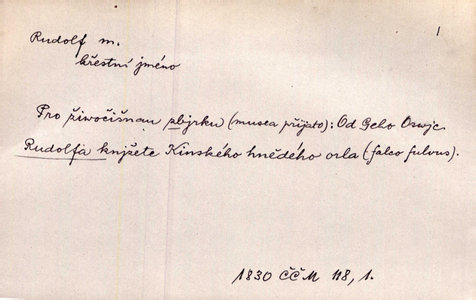 1
Rudolf m.
křestní jméno
Pro žiwočišnau zbjrku (musea přijato): Od Geho Oswjc.
Rudolfa knjžete Kinského hnědého orla (falco fulvus).
1830 ČČM 118, 1.